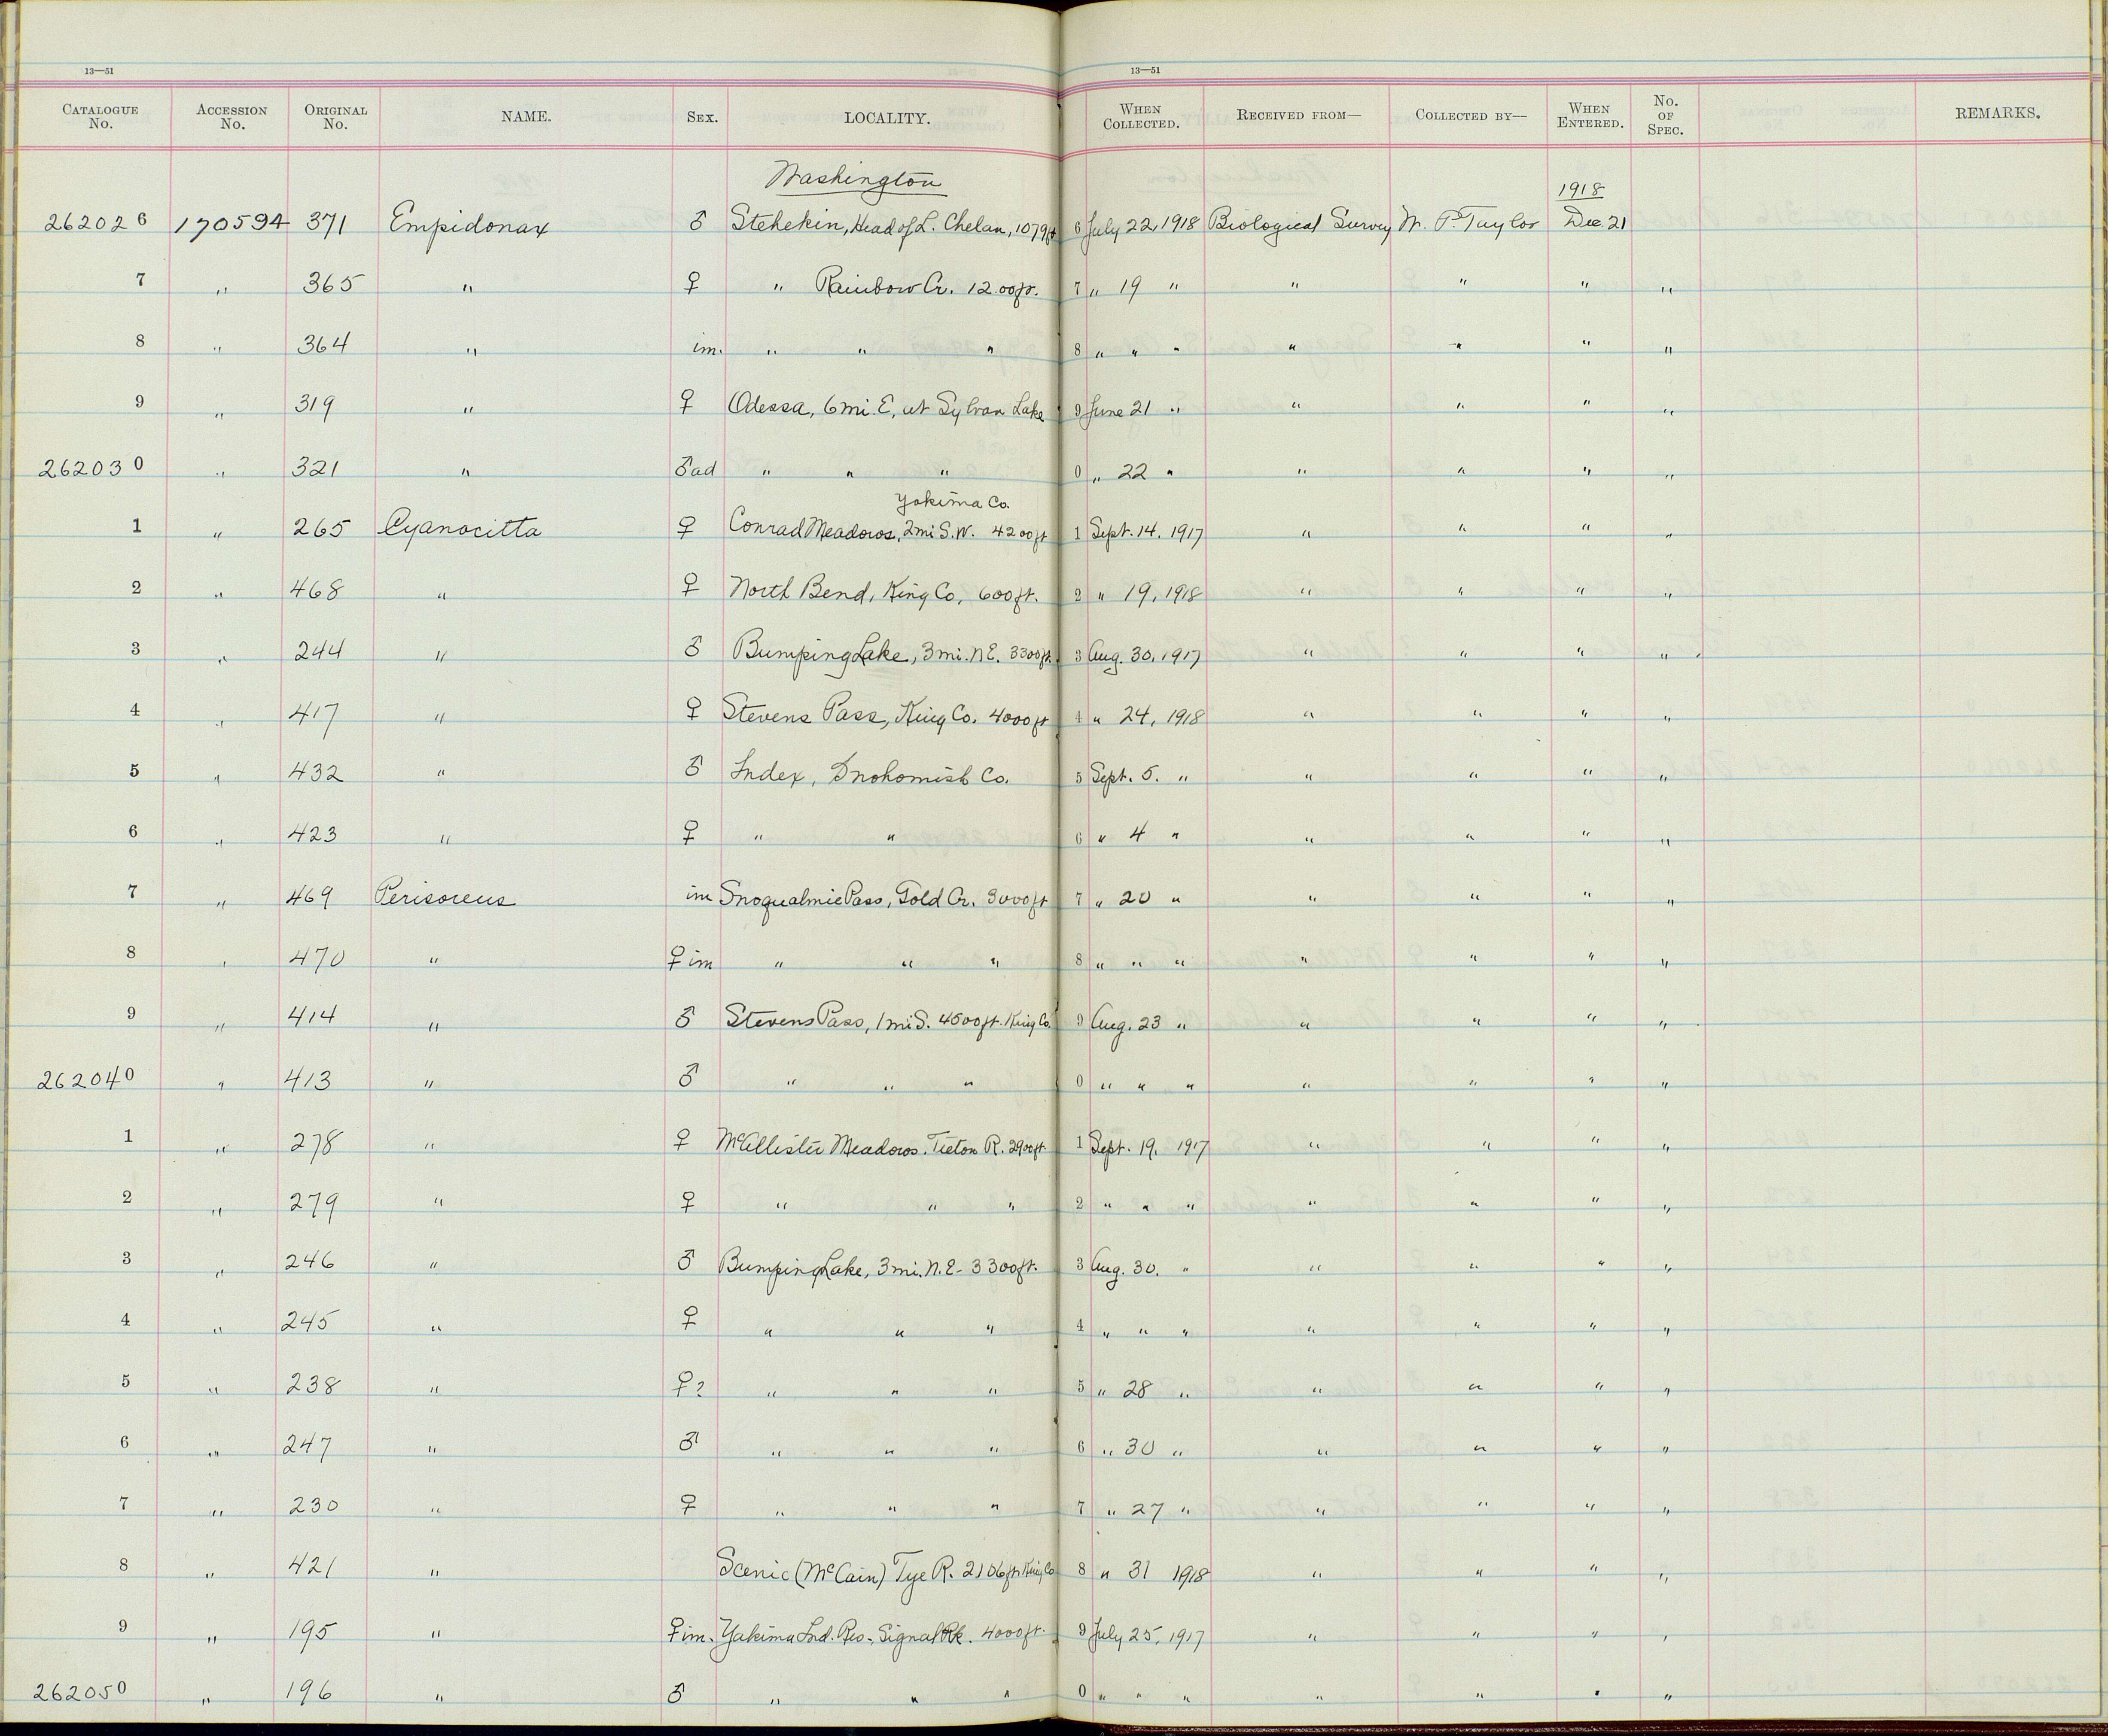 13—51 13—51
CATALOGUE No. ACCESSION No. ORIGINAL No. NAME. SEX. LOCALITY. WHEN COLLECTED. RECEIVED FROM— COLLECTED BY— WHEN ENTERED. No. OF SPEC. REMARKS.
Washington 1918
262026 170594 371 Empidonax ♂ Stehekin, Head of L. Chelan, 1079ft 6 July 22, 1918 Biological Survey W. P. Taylor Dec 21
7 " 365 " ♀ " Rainbow Cr. 1200ft. 7 " 19 " " " " "
8 " 364 " im. " " " 8 " " " " " " "
9 " 319 " ♀ Odessa, 6 mi. E, at Sylvan Lake 9 June 21 " " " " "
262030 " 321 " ♂ad " " " 0 " 22 " " " " "
Yakima Co.
1 " 265 Cyanocitta ♀ Conrad Meadows, 2mi S.W. 4200ft 1 Sept. 14, 1917 " " " "
2 " 468 " ♀ North Bend, King Co, 600ft. 2 " 19, 1918 " " " "
3 " 244 " ♂ Bumping Lake, 3 mi. N E. 3300ft. 3 Aug. 30, 1917 " " " "
4 " 417 " ♀ Stevens Pass, King Co. 4000ft 4 " 24, 1918 " " " "
5 " 432 " ♂ Index, Snohomish Co. 5 Sept. 5. " " " " "
6 " 423 " ♀ " " 6 " 4 " " " " "
7 " 469 Perisoreus im Snoqualmie Pass, Gold Cr. 3000ft 7 " 20 " " " " "
8 " 470 " ♀ im " " " 8 " " " " " " "
9 " 414 " ♂ Stevens Pass, 1 mi S. 4500ft. King Co. 9 Aug. 23 " " " " "
262040 " 413 " ♂ " " " 0 " " " " " " "
1 " 278 " ♀ McAllister Meadows. Tieton R. 2900ft 1 Sept. 19, 1917 " " " "
2 " 279 " ♀ " " " 2 " " " " " " "
3 " 246 " ♂ Bumping Lake, 3 mi. N. E- 3300ft. 3 Aug. 30. " " " " "
4 " 245 " ♀ " " " 4 " " " " " " "
5 " 238 " ♀? " " " 5 " 28 " " " " "
6 " 247 " ♂ " " " 6 " 30 " " " " "
7 " 230 " ♀ " " " 7 " 27 " " " " "
8 " 421 " Scenic (McCain) Tye R. 2106ft King Co 8 " 31 1918 " " " "
9 " 195 " ♀im. Yakima Ind. Res., Signal Pk. 4000ft. 9 July 25, 1917 " " " "
262050 " 196 " ♂ " " " 0 " " " " " " "